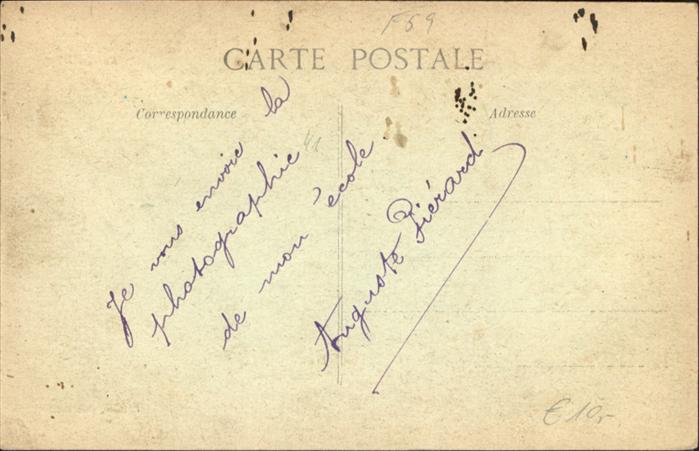 F59
CARTE POSTALE
Correspondance
Adresse
Je vous envoie la
photographie
41
de mon école
Auguste Piérard
€10,-